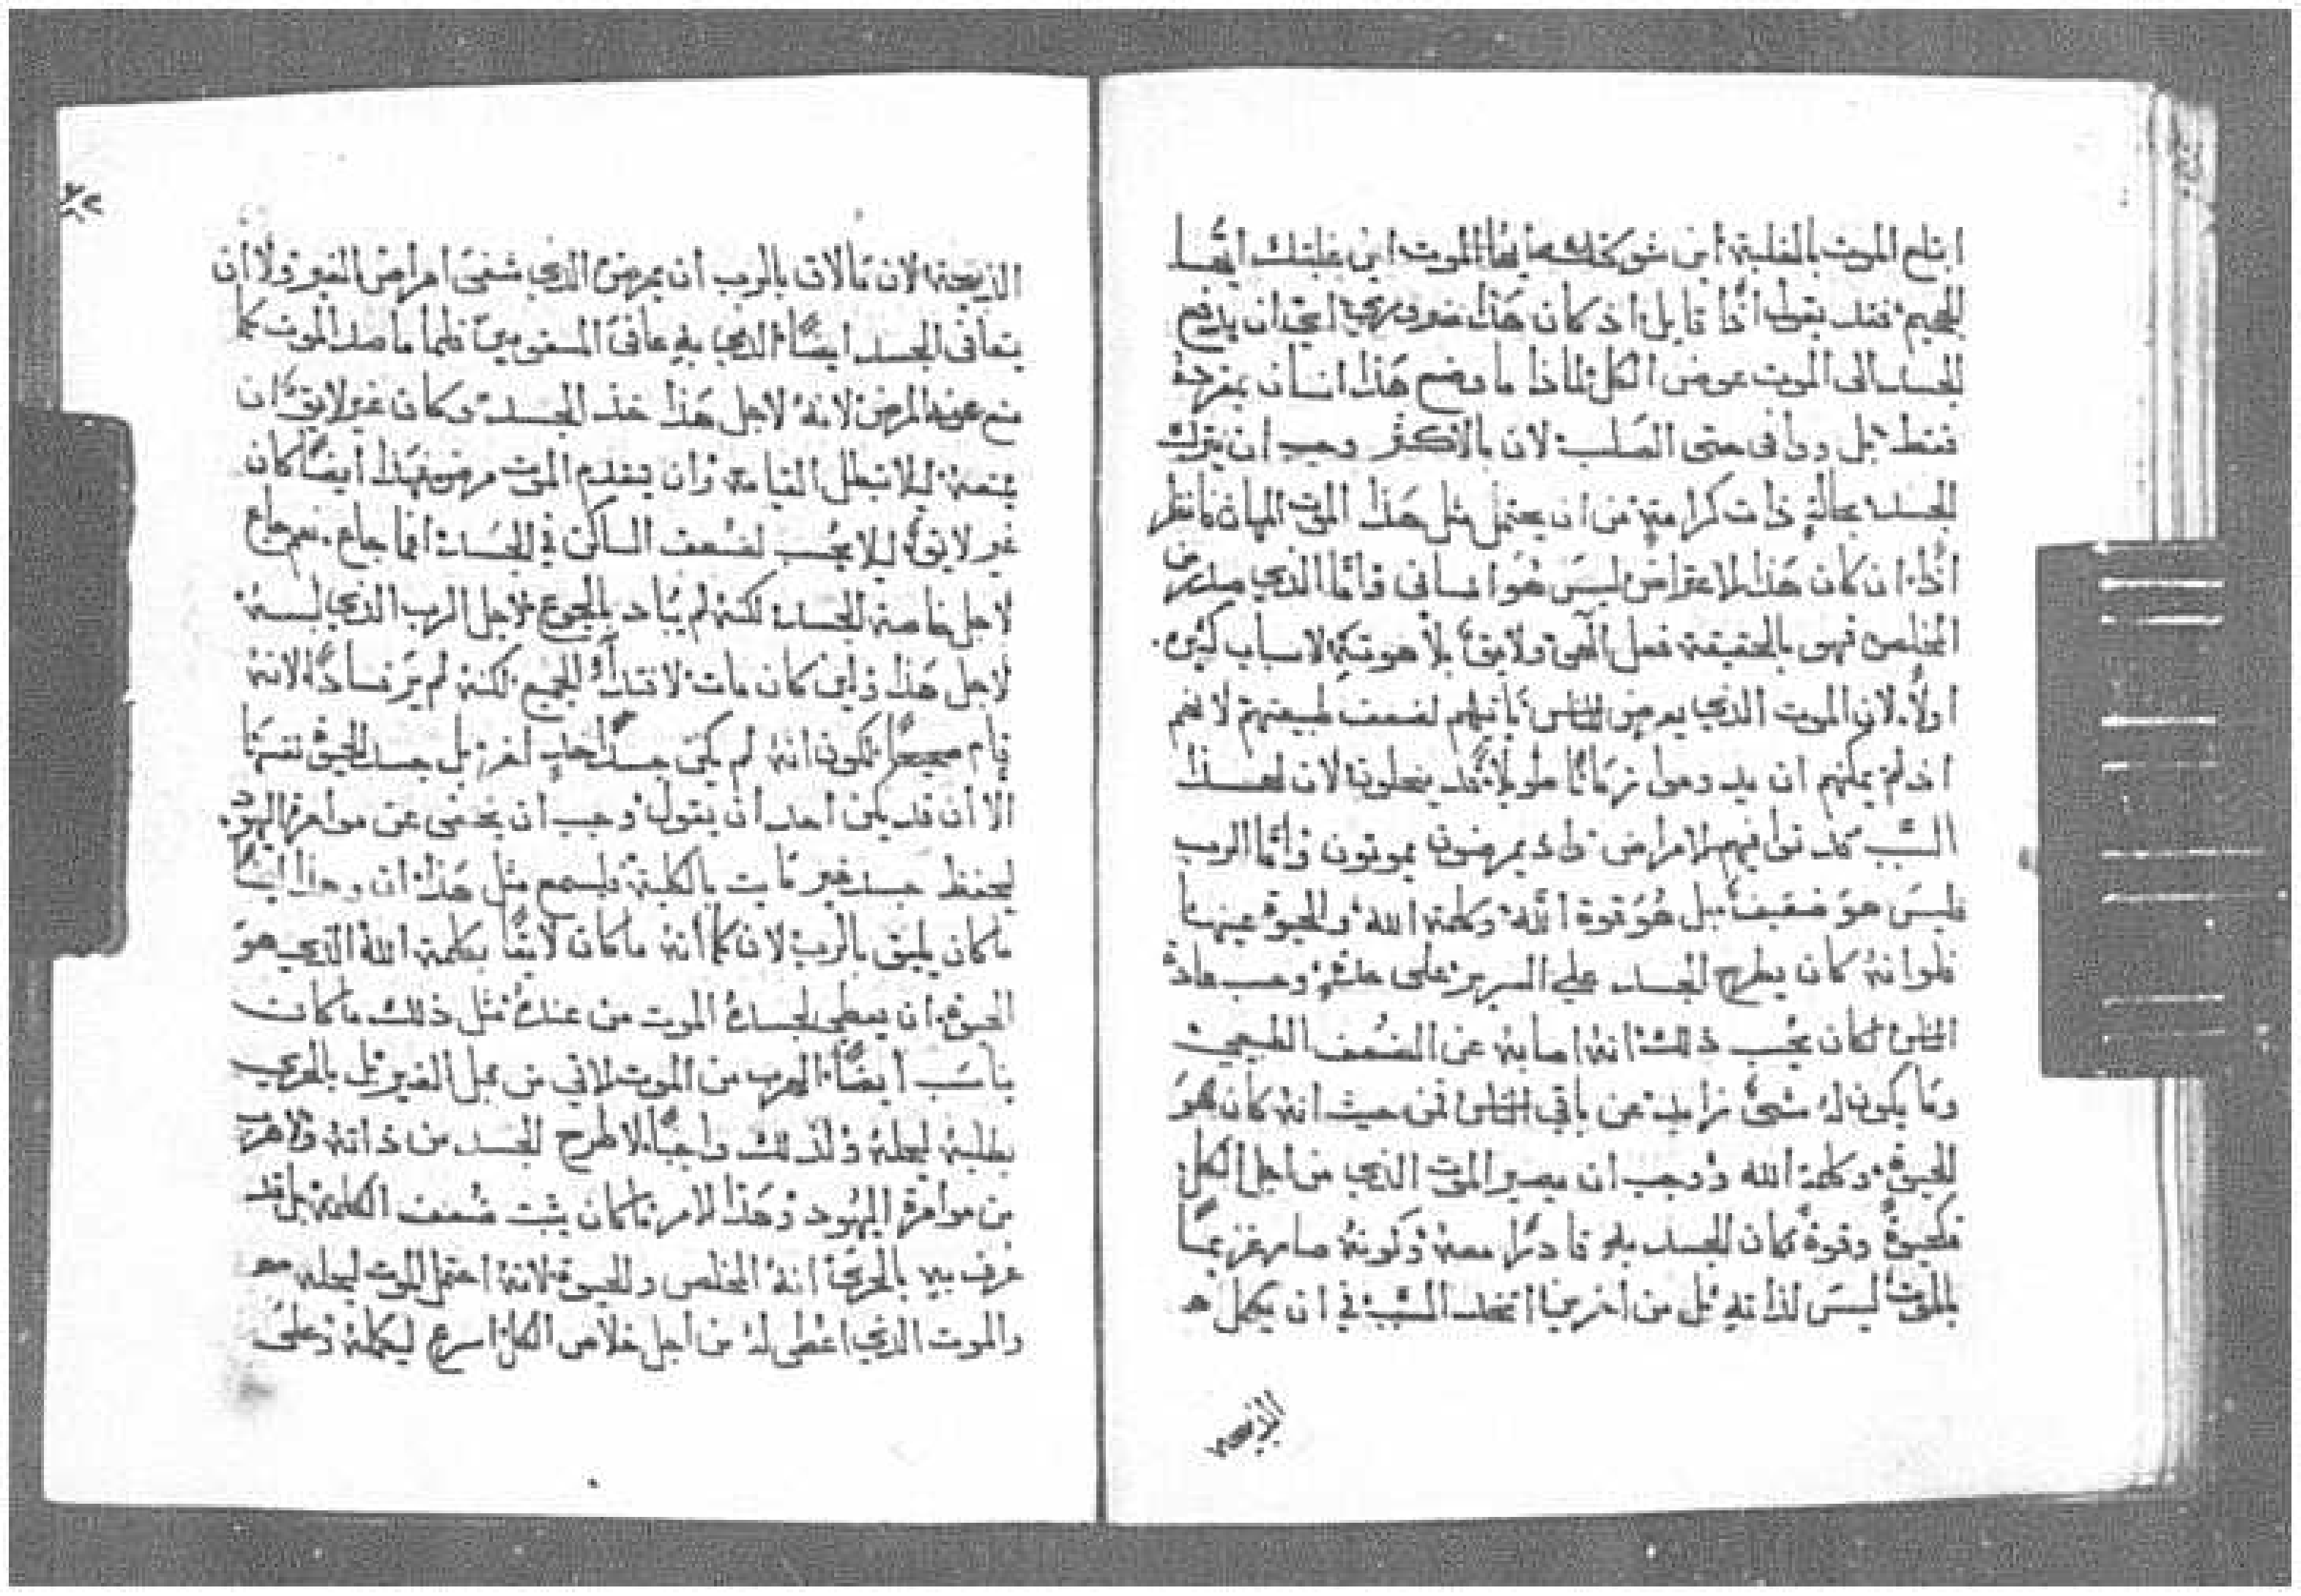 ابتلع الموت بالغلبة اين شوكتك يا ايها الموت اين غلبتك ايضا
للجحيم فقد يقول اذًا قايل اذ كان هذا ضروري اعني ان يدفع
الجسد الى الموت عوض الكل لماذا ما وضع هذا انسان بمفرده
فقط بل ووافى حتى الصلب لان بالاكثر وجب ان يترك
الجسد بحالةٍ ذات كرامةٍ من ان يحتمل مثل هذا الموت المهان فانظر
اذًا ان كان هذا الاعتراض ليسَ هُوَ انساني وامّا الذي صار من
المخلص فهو بالحقيقة فعل الهي ولايق بلاهوته لاسباب كثيره.
اولاً لان الموت الذي يعرض للناس يأتيهم لضعف طبيعتهم لانهم
اذ لم يمكنهم ان يدوموا زمانًا طويلاً فقد ينحلون لان لهذا
السبب قد تولى فيهم الامراض واذ يمرضون يموتون وامّا الرب
فليسَ هوَ ضعيف بل هُوَ قوة الله وكلمة الله والحيوة عينها
فلو انه كان يطرح الجسد على السرير على حدةٍ وحسب عادة
الناس لكان يحسب ذلك انه اصابه عن الضُعف الطبيعي
وما يكون له شيء زايد عن باقي الناس فمن حيث انه كان هو
الحيوة وكلمة الله ووجب ان يصير الموت الذي من اجل الكل
فكحيوةٍ وقوة كان الجسد به قادرًا معه وكونه صار مزمعًا
بالموت ليسَ لذاته بل من اخرين اتخذ السبب في ان يكمل
الذبيحة
الذبيحة لان ما لاق بالرب ان يمرض الذي شفى امراض الغير ولا ان
يتعافى الجسد ايضًا الذي به عافى المسقومين فلما ما صد الموت كما
منع عنه المرض لانه لاجل هذا خذ الجسد وكان غير لايق ان
يمنعه ليلا تبطل القيامة وان يتقدم الموت مرض فهذا ايضًا كان
غير لايق ليلا يحسب لضعف الساكن في الجسد افما جاع. نعم جاع
لاجل خاصة الجسد لكنه لم يُباد بالجوع لاجل الرب الذي لبسه
لاجل هذا ولين كان مات لافتدآء الجميع لكنه لم يَر فسادًا لانه
قام صحيحًا لكون انه لم يكن جسدًا لاحدٍ اخر بل جسد الحيوة نفسها
الا ان قد يمكن احد ان يقول وجب ان يختفي عن موامرة اليهود
ليحفظ جسده غير مايت بالكلية فليسمع مثل هذا ان وهذا ايضًا
ما كان يليق بالرب لان كما انه ما كان لايقًا بكلمة الله الذي هو
الحيوة ان يعطي لجسده الموت من عنده مثل ذلك ما كان
يناسَب ايضًا الهرب من الموت الاتي من قبل الغير بل بالحري
يطلبه ليحله ولذلك واجبًا لا طرح الجسد من ذاته ولا هرب
من موامرة اليهود وهذا الامر ما كان يثبت ضُعف الكلمة بل قد
عرف به بالحري انه المخلص والحيوة لانه احتمل الموت ليحله
والموت الذي اعْطى له من اجل خلاص الكل اسرع ليكمله وعلى